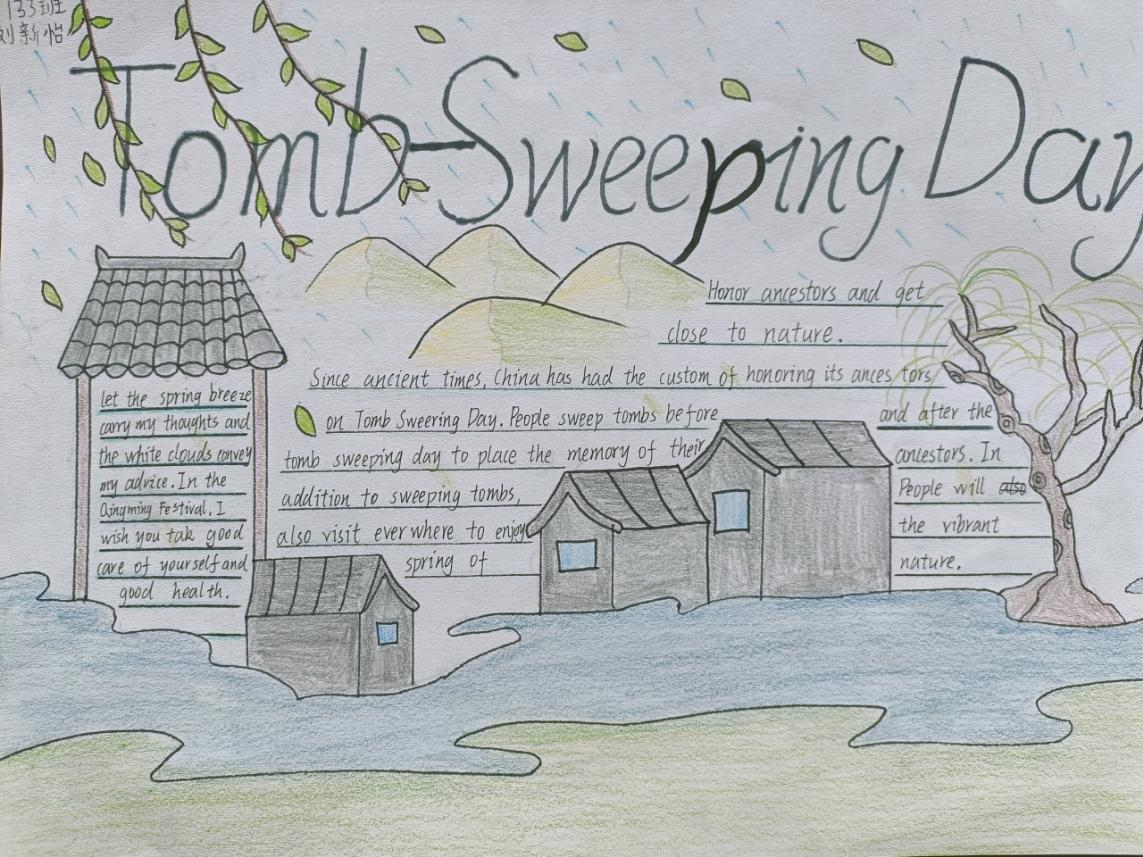 133班
刘新怡
Tomb-Sweeping Day
Honor ancestors and get
close to nature.
Since ancient times, China has had the custom of honoring its ances tors
on Tomb Sweering Day. People sweep tombs before and after the
tomb sweeping day to place the memory of their ancestors. In
addition to sweeping tombs, People will also
also visit ever where to enjoy the vibrant
spring of nature.
let the spring breeze
carry my thoughts and
the white clouds convey
my advice. In the
Qingming Festival, I
wish you tak good
care of yourself and
good health.